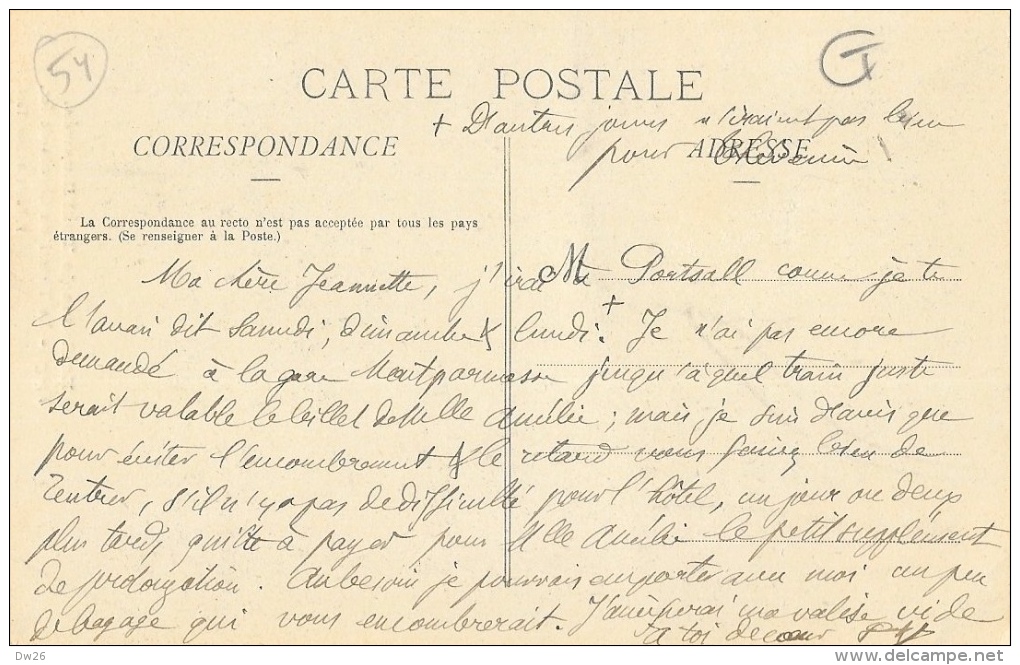 54
G
CARTE POSTALE
+ D'autres jours n'iraient pas bien
pour
CORRESPONDANCE
ADRESSE
La Correspondance au recto n'est pas acceptée par tous les pays
étrangers. (Se renseigner à la Poste.)
Ma chère Jeannette, j'irai à Portsall comme je te
l'avais dit samedi, dimanche & lundi. + Je n'ai pas encore
demandé à la gare Montparnasse jusqu'à quel train juste
serait valable le billet de Mlle Amélie ; mais je suis d'avis que
pour éviter l'encombrement & le retard vous feriez bien de
rentrer, s'il n'y a pas de difficulté pour l'hôtel, un jour ou deux
plus tard, quitte à payer pour Mlle Amélie le petit supplément
de prolongation. Au besoin je pourrais emporter avec moi un peu
de bagage qui vous encombrerait. J'amènerai ma valise vide
à toi de cœur
delcampe.net
Dw26